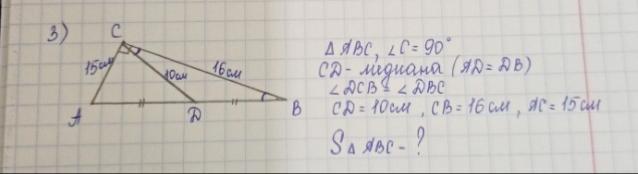 3)
C
15см
10см
16см
A
D
B
Δ ABC, ∠C = 90°
CD - медиана (AD = DB)
∠DCB = ∠DBC
CD = 10см, CB = 16см, AC = 15см
S Δ ABC - ?